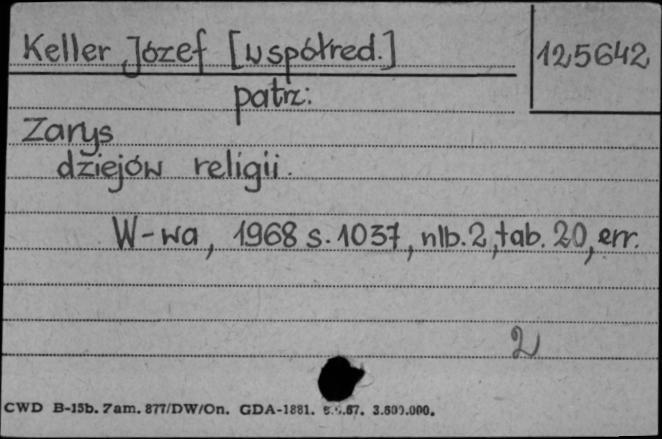 Keller Józef [współred.]
125642
patrz:
Zarys
dziejów religii.
W-wa, 1968 s. 1037, nlb. 2, tab. 20, err.
2
CWD B-15b. Zam. 877/DW/On. GDA-1881. 3.600.000.